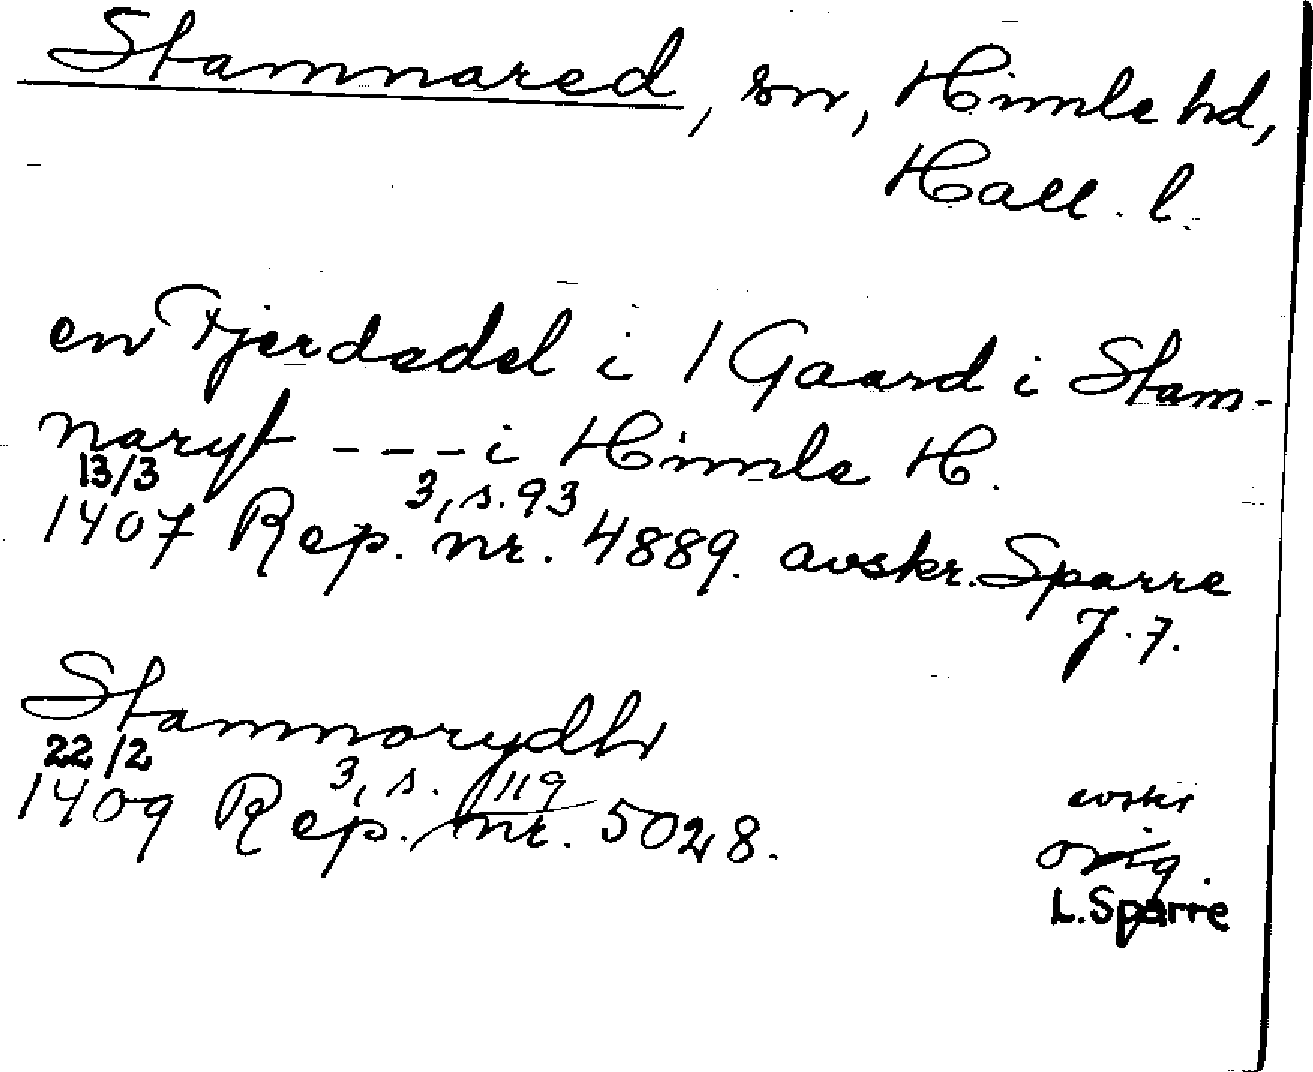 Stamnared, sn, Himle hd,
Hall. l.
en Fjerdedel i 1 Gaard i Stam-
naryt - - - i Himle H.
13/3 3, s. 93
1407 Rep. nr. 4889. avskr. Sparre
J. 7.
Stamnorydhr
22/2 3, s. 119
1409 Rep. nr. 5028.
avskr
orig.
L. Sparre